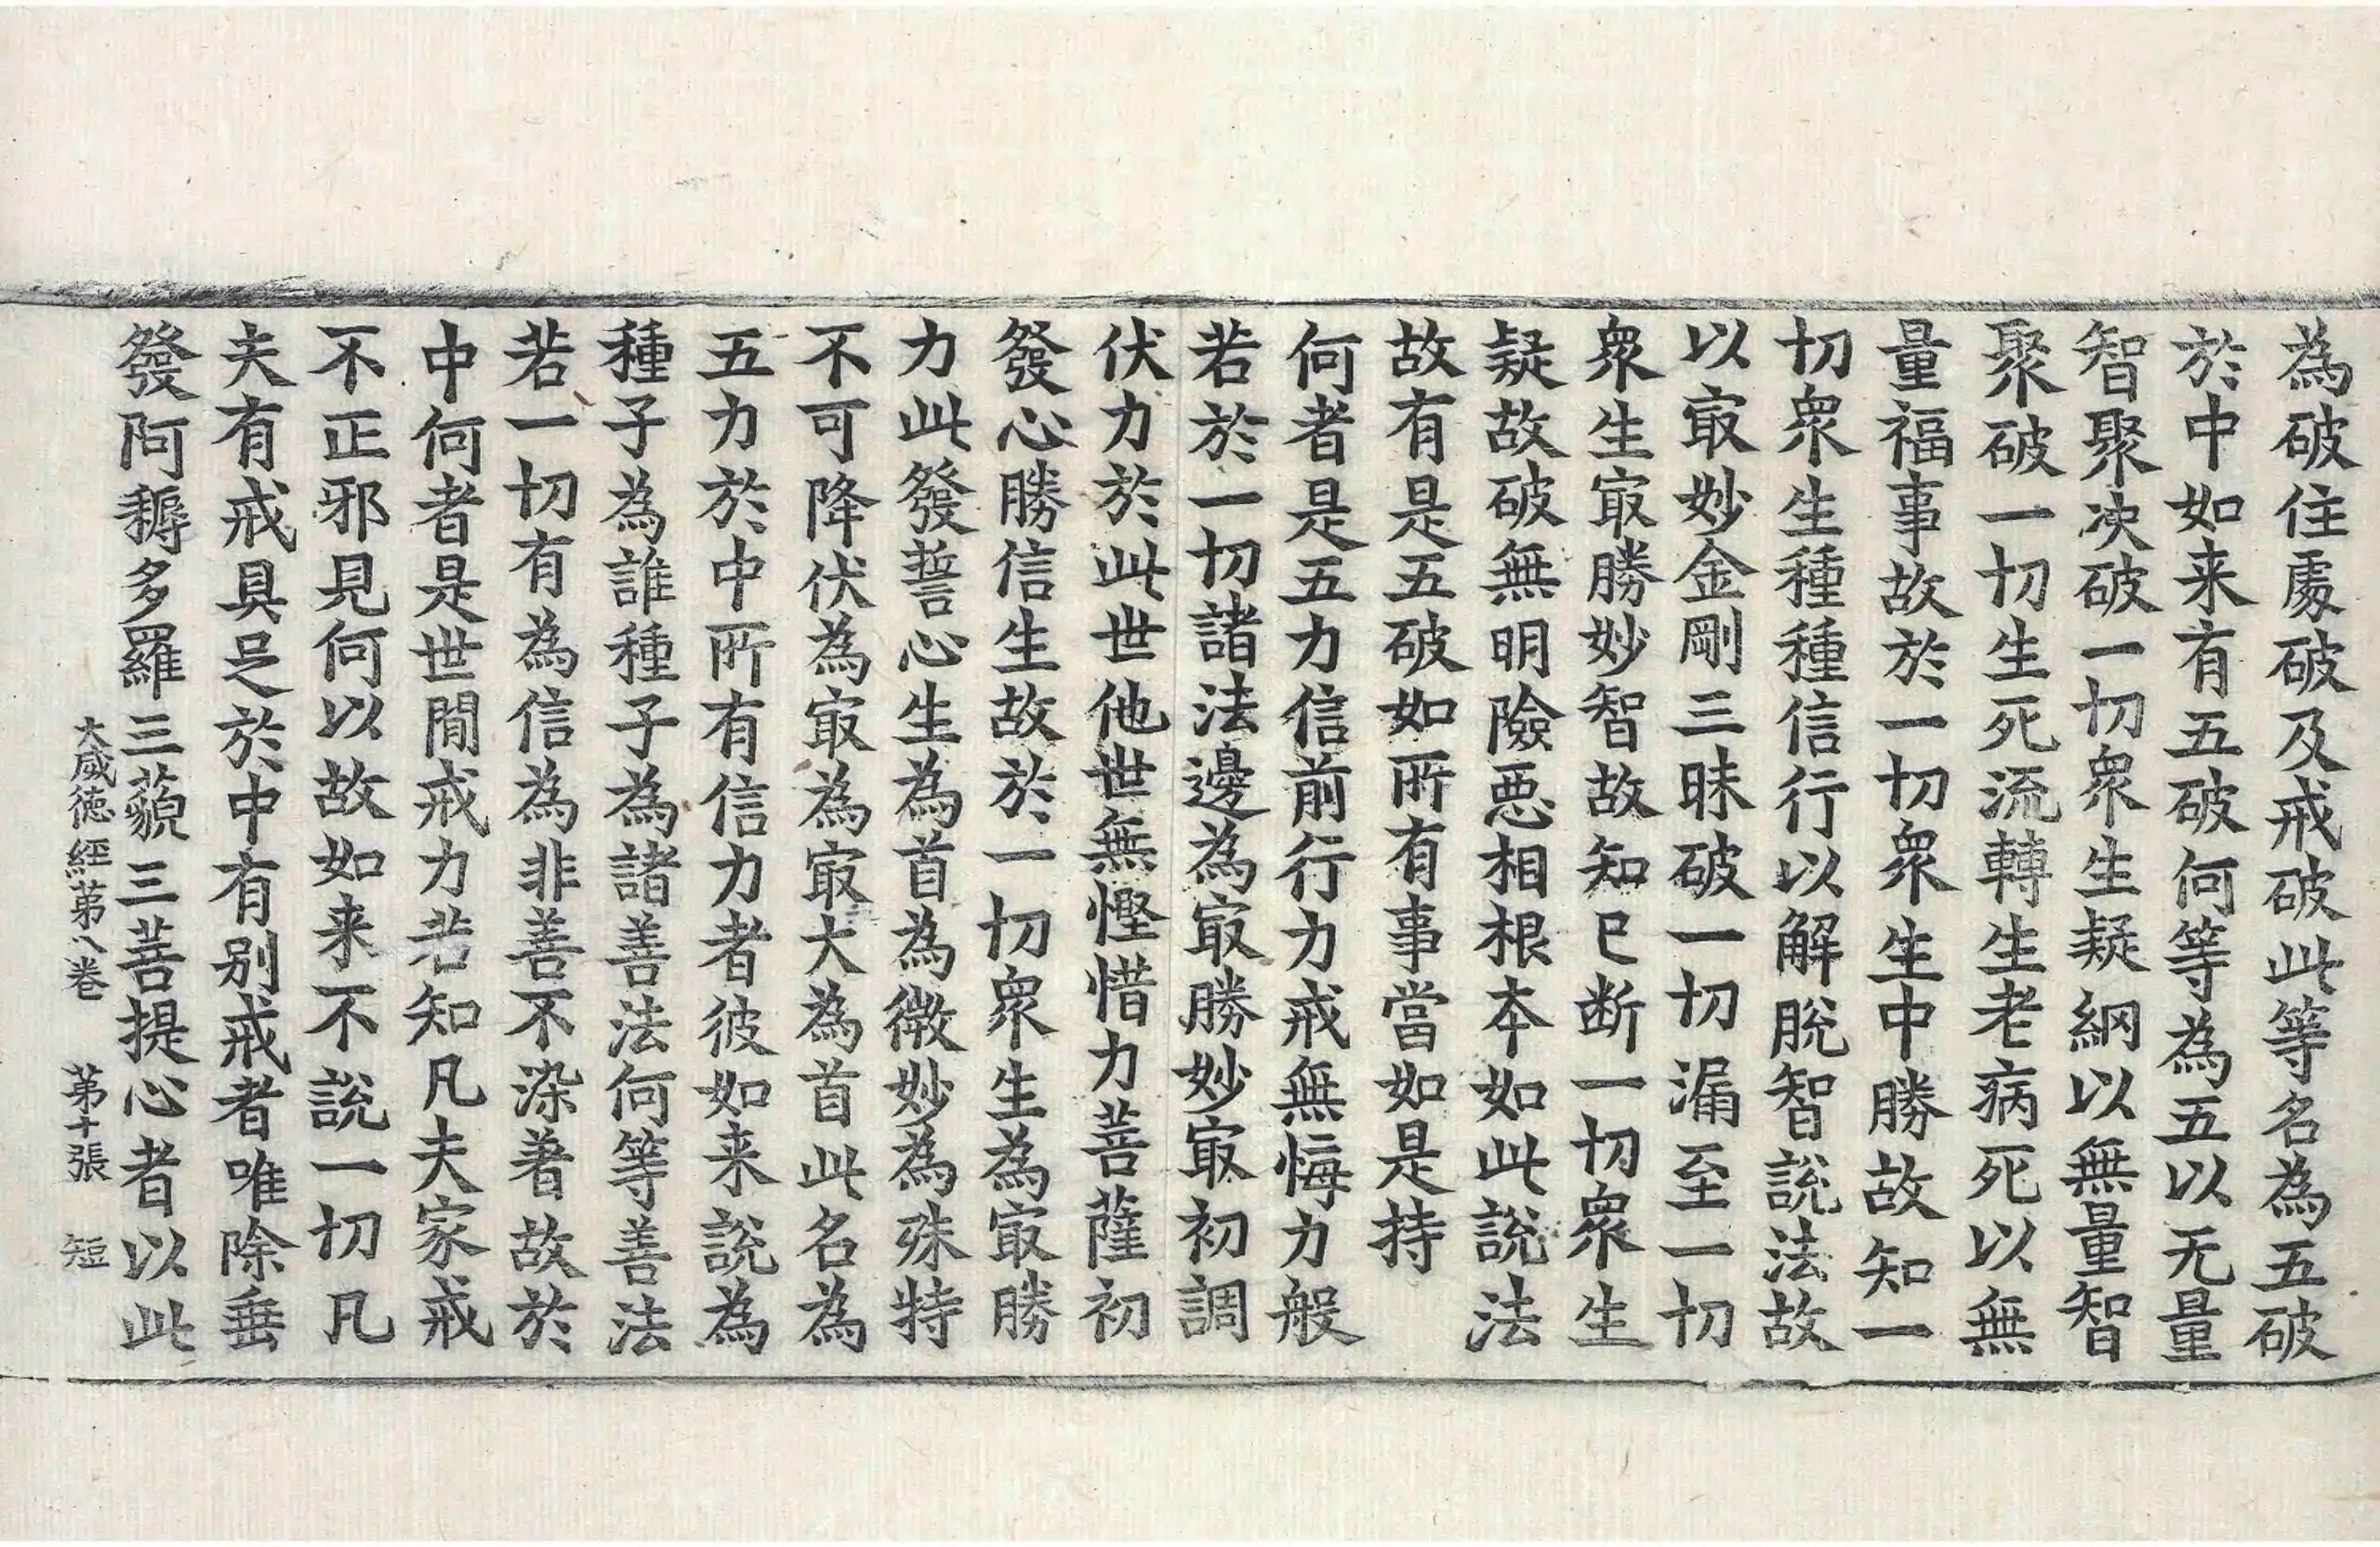 為破住處破及戒破此等名為五破
於中如来有五破何等為五以无量
智聚決破一切衆生疑網以無量智
聚破一切生死流轉生老病死以無
量福事故於一切衆生中勝故知一
切衆生種種信行以解脫智說法故
以冣妙金剛三昧破一切漏至一切
衆生冣勝妙智故知已断一切衆生
疑故破無明險惡相根本如此說法
故有是五破如所有事當如是持
何者是五力信前行力戒無悔力般
若於一切諸法邊為冣勝妙冣初調
伏力於此世他世無慳惜力菩薩初
發心勝信生故於一切衆生為冣勝
力此發誓心生為首為微妙為殊特
不可降伏為冣為冣大為首此名為
五力於中所有信力者彼如来說為
種子為誰種子為諸善法何等善法
若一切有為信為非善不染著故於
中何者是世間戒力若知凡夫家戒
不正邪見何以故如来不說一切凡
夫有戒具足於中有別戒者唯除垂
發阿耨多羅三藐三菩提心者以此
大威徳經苐八卷 苐十張 短